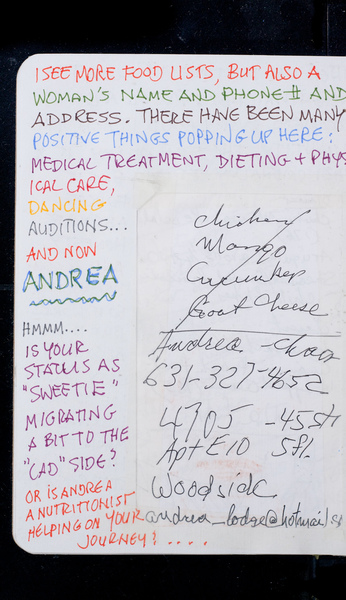 I SEE MORE FOOD LISTS, BUT ALSO A
WOMAN'S NAME AND PHONE # AND
ADDRESS. THERE HAVE BEEN MANY
POSITIVE THINGS POPPING UP HERE:
MEDICAL TREATMENT, DIETING + PHYS
ICAL CARE,
DANCING
AUDITIONS...
AND NOW
ANDREA
HMMM....
IS YOUR
STATUS AS
"SWEETIE"
MIGRATING
A BIT TO THE
"CAD" SIDE?
OR IS ANDREA
A NUTRITIONIST
HELPING ON YOUR
JOURNEY? ....
chicken
Mango
Cucumber
Goat Cheese
Andrea -
631-327-4652
4705 - 45 St
Apt E10 5 fl.
Woodside